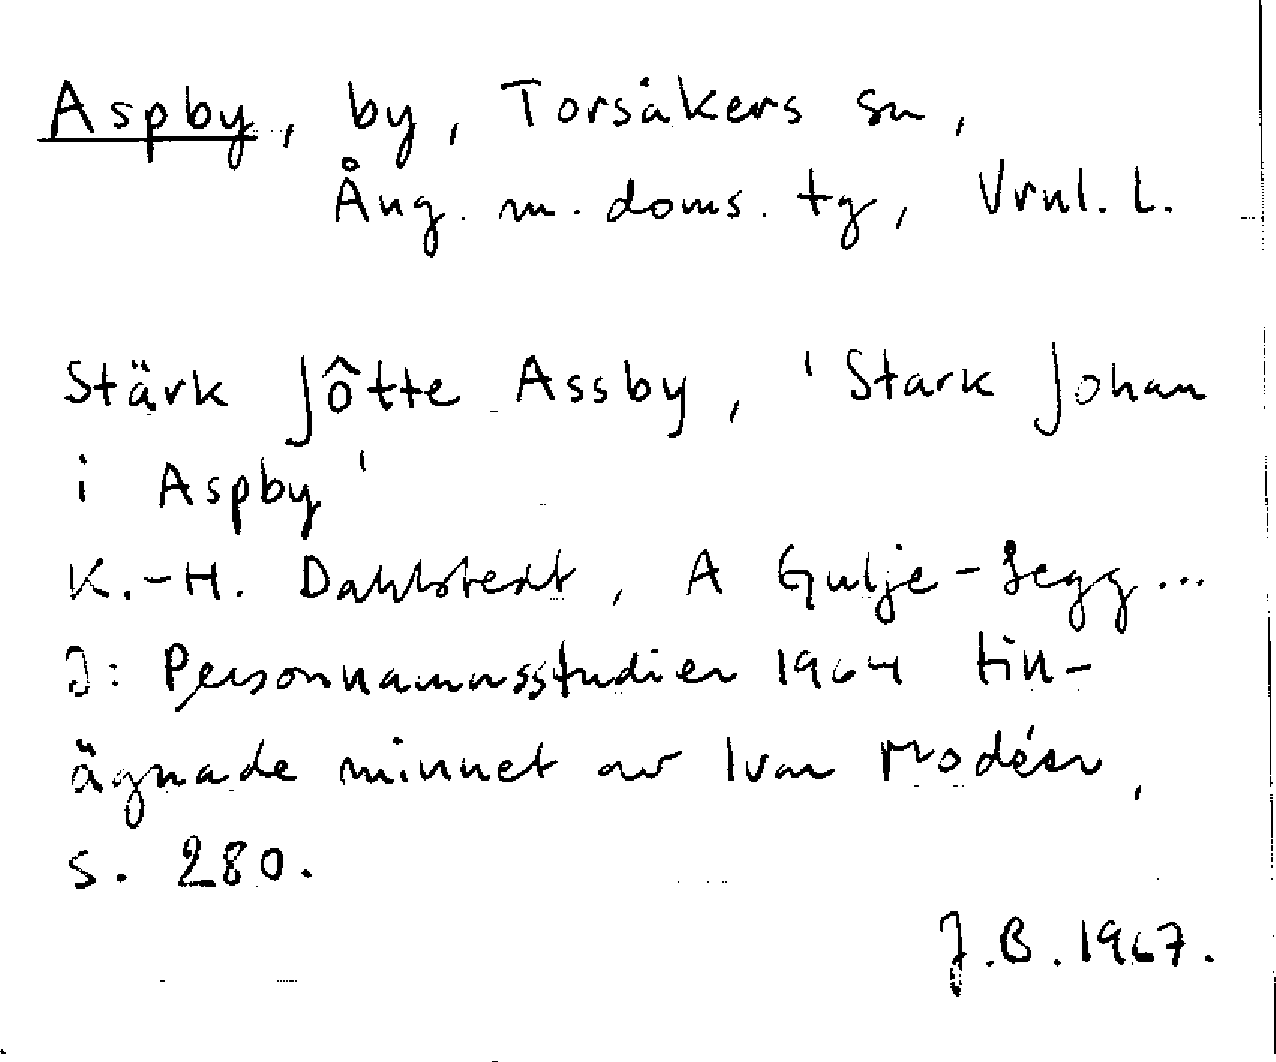 Aspby, by, Torsåkers sn,
Ång. m. doms. tg, Vrnl. L.
Stärk Jôtte Assby, 'Stark Johan
i Aspby'
K.-H. Dahlstedt, A Gulje-Segg...
I: Personnamnsstudier 1964 till-
ägnade minnet av Ivar Modéer,
s. 280.
J.B. 1967.